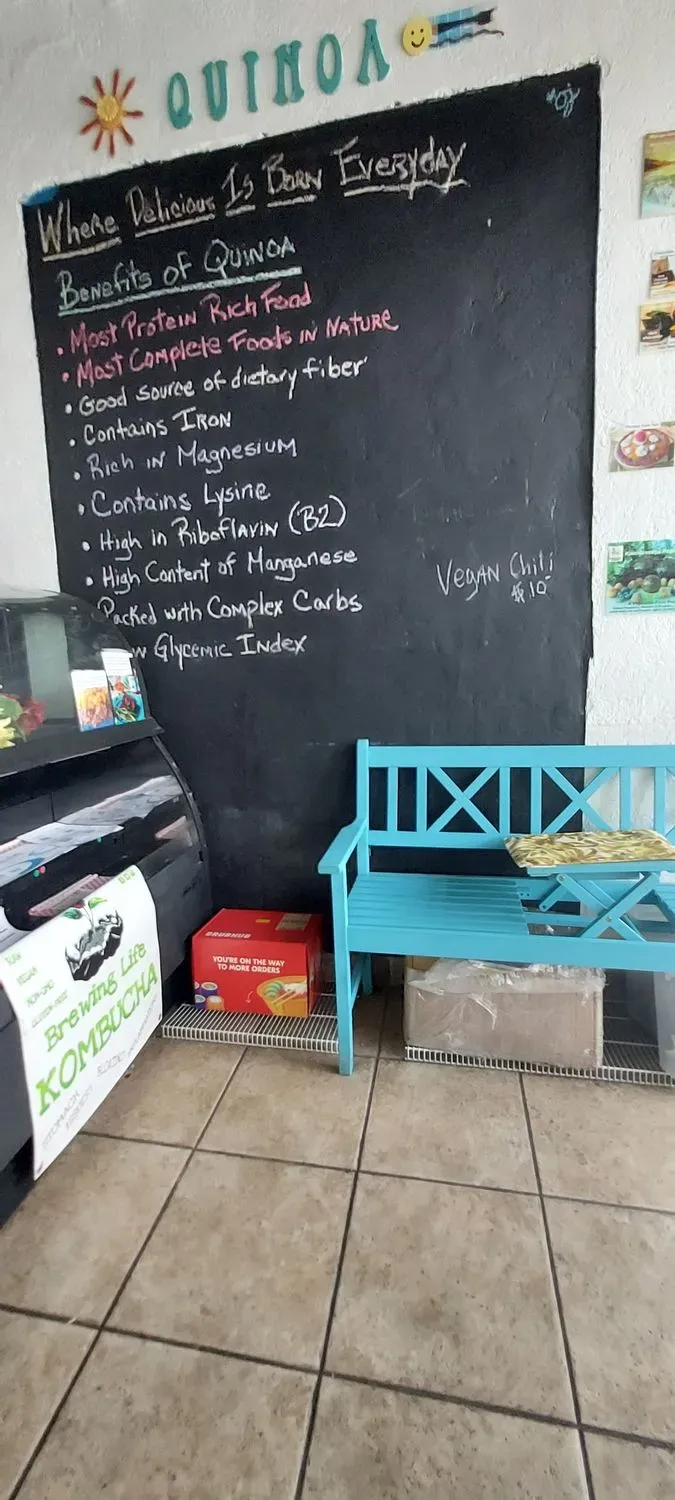 QUINOA
Where Delicious Is Born Everyday
Benefits of Quinoa
• Most Protein Rich Food
• Most Complete Foods in Nature
• Good source of dietary fiber
• Contains Iron
• Rich in Magnesium
• Contains Lysine
• High in Riboflavin (B2)
• High Content of Manganese
Packed with Complex Carbs
w Glycemic Index
Vegan Chili
$10
GRUBHUB
YOU'RE ON THE WAY
TO MORE ORDERS
RAW
VEGAN
NON-GMO
GLUTEN FREE
Brewing Life
KOMBUCHA